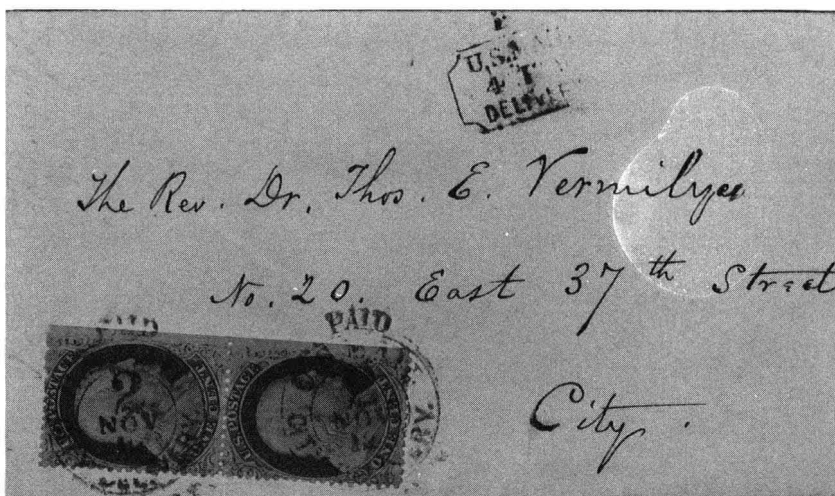 U.S.MA
4
DELIVE
The Rev. Dr. Thos. E. Vermilye
No. 20. East 37th Street
City.
PAID
PAID
2
NOV
NOV
ERV.
U.S. POSTAGE
U.S. POSTAGE